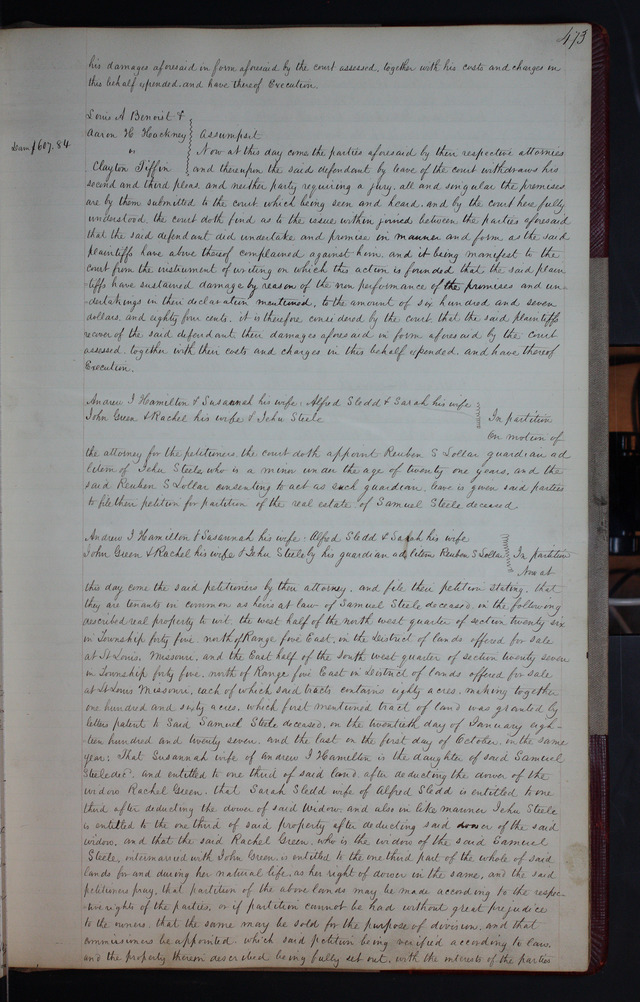 473
his damages aforesaid in form aforesaid by the court assessed, together with his costs and charges in
this behalf expended, and have thereof Execution.
Louis A Benoist &
Aaron H Hackney
Assumpsit
Dam $607.84
vs
Now at this day come the parties aforesaid by their respective attornies
Clayton Tiffin
and thereupon the said defendant by leave of the court withdraws his
second and third pleas, and neither party requiring a jury, all and singular the premises
are by them submitted to the court which being seen and heard, and by the court here fully
understood, the court doth find as to the issue within joined between the parties aforesaid
that the said defendant did undertake and promise in manner and form as the said
plaintiffs have above thereof complained against him, and it being manifest to the
court from the instrument of writing on which this action is founded that the said plain
tiffs have sustained damage by reason of the non performance of the promises and un=
dertakings in their declaration mentioned, to the amount of six hundred and seven
dollars, and eighty four cents. it is therefore considered by the court, that the said plaintiffs
recover of the said defendant their damages aforesaid in form aforesaid by the court
assessed, together with their costs and charges in this behalf expended, and have thereof
Execution.
Andrew I Hamilton & Susannah his wife, Alfred Sledd & Sarah his wife
John Green & Rachel his wife & John Steele
In partition
On motion of
the attorney for the petitioners, the court doth appoint Reuben S Lollar guardian ad
litem of John Steele who is a minor under the age of twenty one years, and the
said Reuben S Lollar consenting to act as such guardian, leave is given said parties
to file their petition for partition of the real estate of Samuel Steele deceased
Andrew I Hamilton & Susannah his wife: Alfred Sledd & Sarah his wife
John Green & Rachel his wife & John Steele by his guardian ad litem Reuben S Lollar
In partition
Now at
this day come the said petitioners by their attorney, and file their petition stating, that
they are tenants in common as heirs at law of Samuel Steele deceased, in the following
described real property to wit, the west half of the north west quarter of section twenty six
in Township forty five, north of Range five East, in the District of lands offered for sale
at St Louis, Missouri, and the East half of the South west quarter of section twenty seven
in Township forty five, north of Range five East in District of lands offered for sale
at St Louis Missouri, each of which said tracts contains eighty acres, making together
one hundred and sixty acres, which first mentioned tract of land was granted by
letters patent to Said Samuel Steele deceased, on the twentieth day of January eigh-
teen hundred and twenty seven, and the last on the first day of October, in the same
year; That Susannah wife of Andrew I Hamilton is the daughter of said Samuel
Steele decd. and entitled to one third of said land, after deducting the dower of the
widow Rachel Green, that Sarah Sledd wife of Alfred Sledd is entitled to one
third after deducting the dower of said Widow, and also in like manner John Steele
is entitled to the one third of said property after deducting said dower of the said
widow, and that the said Rachel Green, who is the widow of the said Samuel
Steele, intermarried with John Green, is entitled to the one third part of the whole of said
lands for and during her natural life, as her right of dower in the same, and the said
petitioners pray, that partition of the above lands may be made according to the respec-
tive rights of the parties, or if partition cannot be had without great prejudice
to the owners, that the same may be sold for the purpose of division, and that
commissioners be appointed. which said petition being verified according to law,
and the property therein described being fully set out, with the interests of the parties